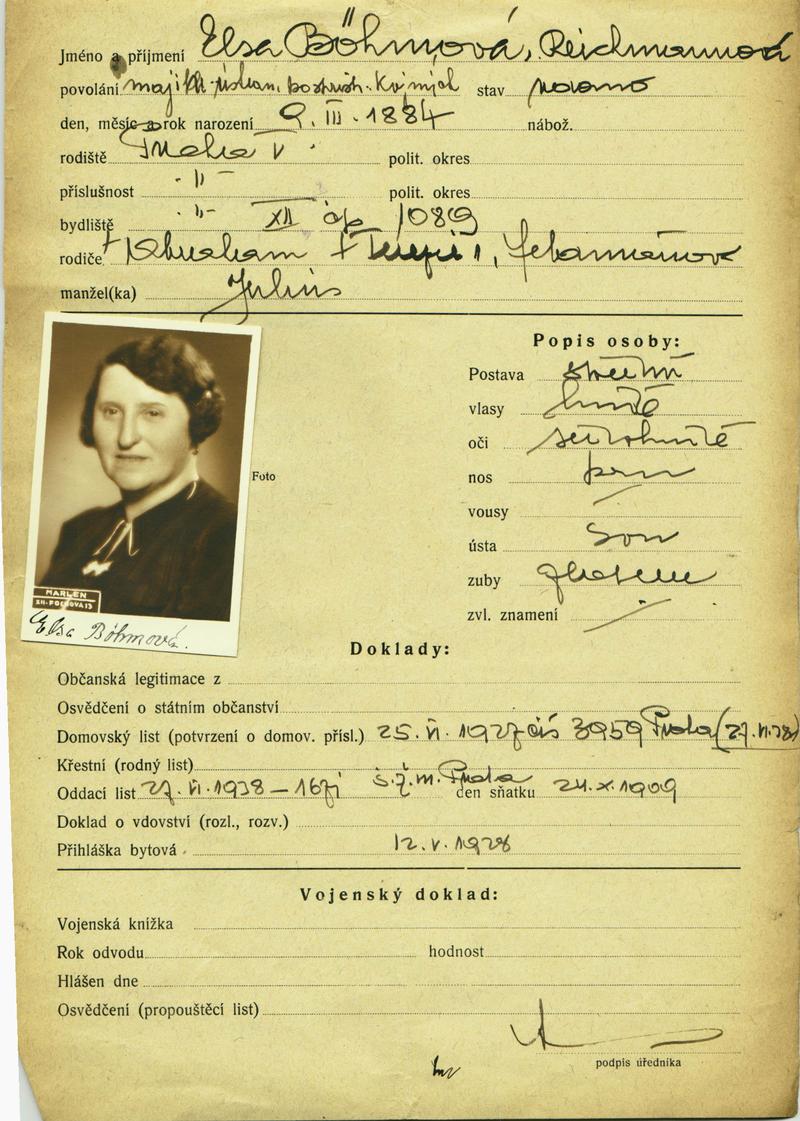 Jméno a příjmení Elsa Böhmová, Reichmannová
povolání stav
den, měsíc a rok narození 9. III. 1884 nábož.
rodiště Praha V polit. okres
příslušnost - " - polit. okres
bydliště - " - XII čp 1089
rodiče Abraham
manžel(ka) Julius
Popis osoby:
Postava střední
vlasy hnědé
oči
nos
vousy
ústa
zuby
zvl. znamení
Foto
MARLEN
XII-FOCHOVA 13
Elsa Böhmová.
Doklady:
Občanská legitimace z
Osvědčení o státním občanství
Domovský list (potvrzení o domov. přísl.) 25. VI. 1927 čís 3959 Praha
Křestní (rodný list)
Oddací list 27. VI. 1938 den sňatku 24. X. 1909
Doklad o vdovství (rozl., rozv.)
Přihláška bytová 12. V. 1928
Vojenský doklad:
Vojenská knížka
Rok odvodu hodnost
Hlášen dne
Osvědčení (propouštěcí list)
podpis úředníka